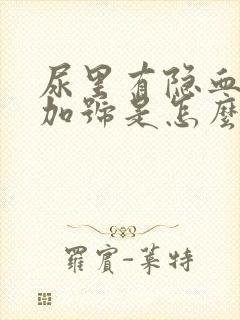 尿里有隐血
加号是怎麽
羅賓-莱特